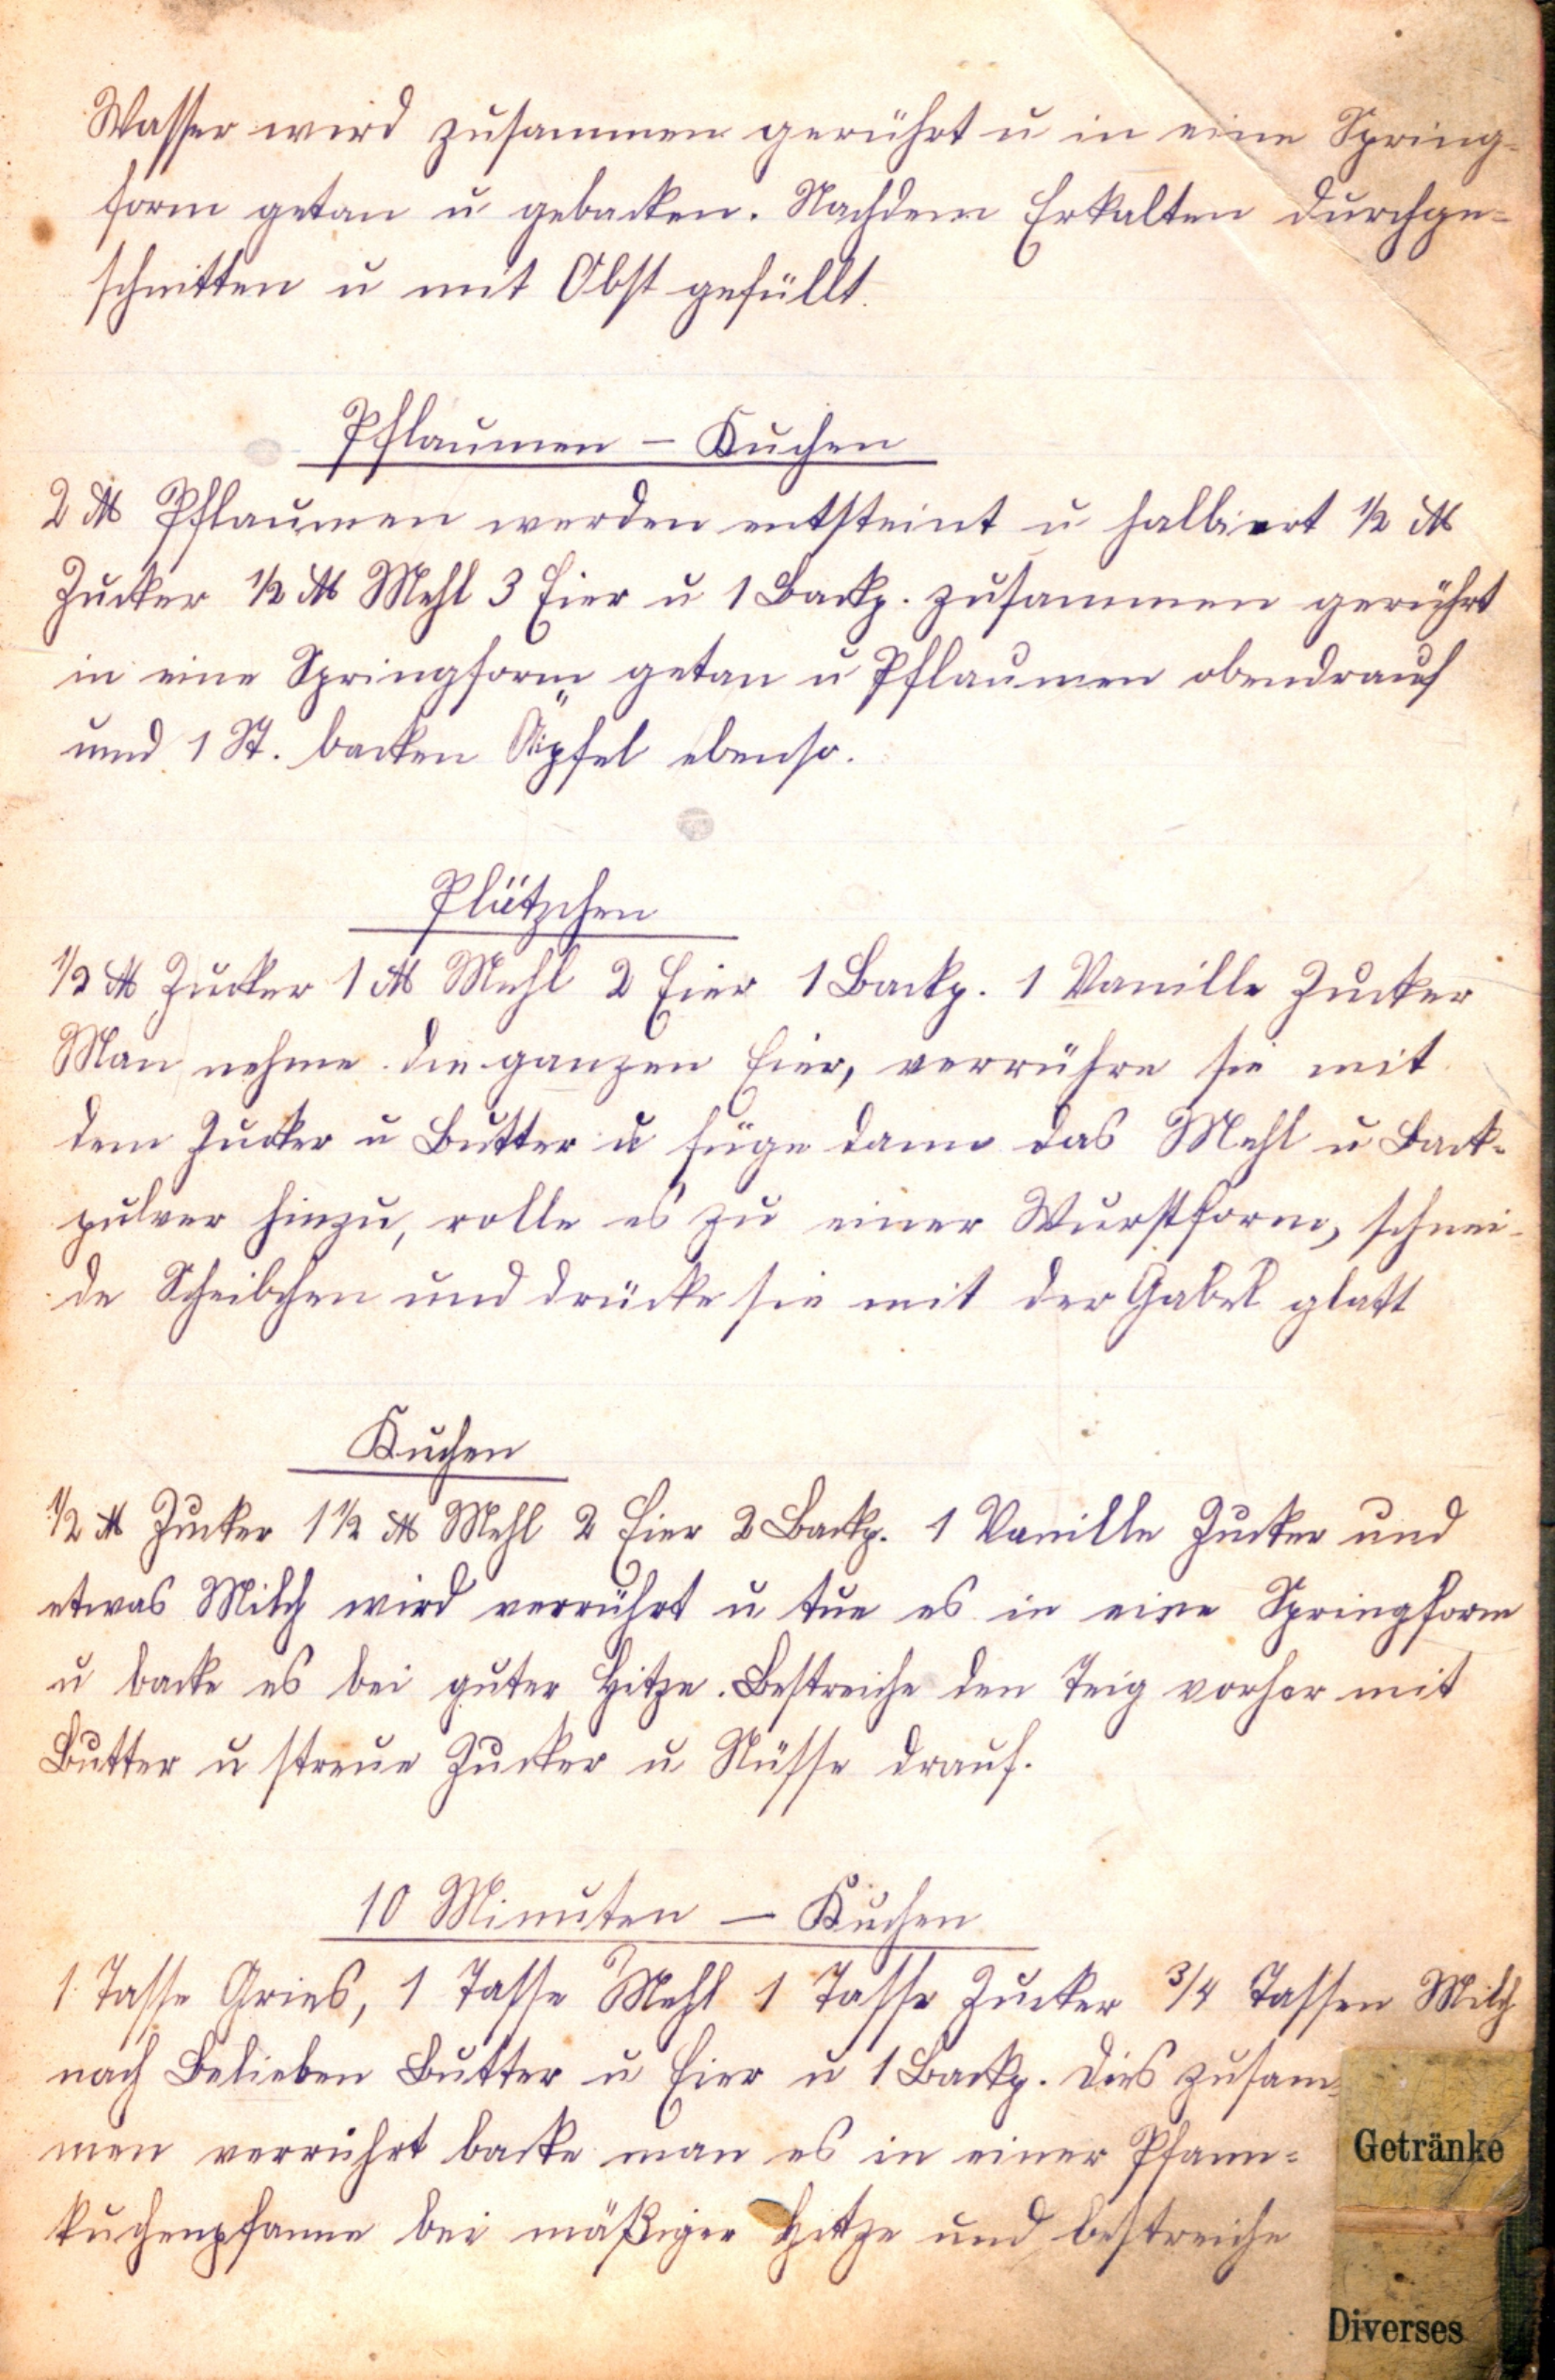 Wasser wird zusammen gerührt u in eine Spring-
form getan u gebacken. Nachdem Erkalten durchge-
schnitten u mit Obst gefüllt.
Pflaumen – Kuchen
2 ℔ Pflaumen werden entsteint u halbiert ½ ℔
Zucker ½ ℔ Mehl 3 Eier u 1 Backp. zusammen gerührt
in eine Springform getan u Pflaumen obendrauf
und 1 St. backen Äpfel ebenso.
Plätzchen
½ ℔ Zucker 1 ℔ Mehl 2 Eier 1 Backp. 1 Vanille Zucker
Man nehme die ganzen Eier, verrühre sie mit
dem Zucker u Butter u füge dann das Mehl u Back-
pulver hinzu, rolle es zu einer Wurstform, schnei-
de Scheibchen und drücke sie mit der Gabel glatt
Kuchen
½ ℔ Zucker 1 ½ ℔ Mehl 2 Eier 2 Backp. 1 Vanille Zucker und
etwas Milch wird verrührt u tue es in eine Springform
u backe es bei guter Hitze. Bestreiche den Teig vorher mit
Butter u streue Zucker u Nüsse drauf.
10 Minuten – Kuchen
1 Tasse Gries, 1 Tasse Mehl 1 Tasse Zucker ¾ Tassen Milch
nach Belieben Butter u Eier u 1 Backp. Dies zusam-
men verrührt backe man es in einer Pfann-
kuchenpfanne bei mäßiger Hitze und bestreiche
Getränke
Diverses